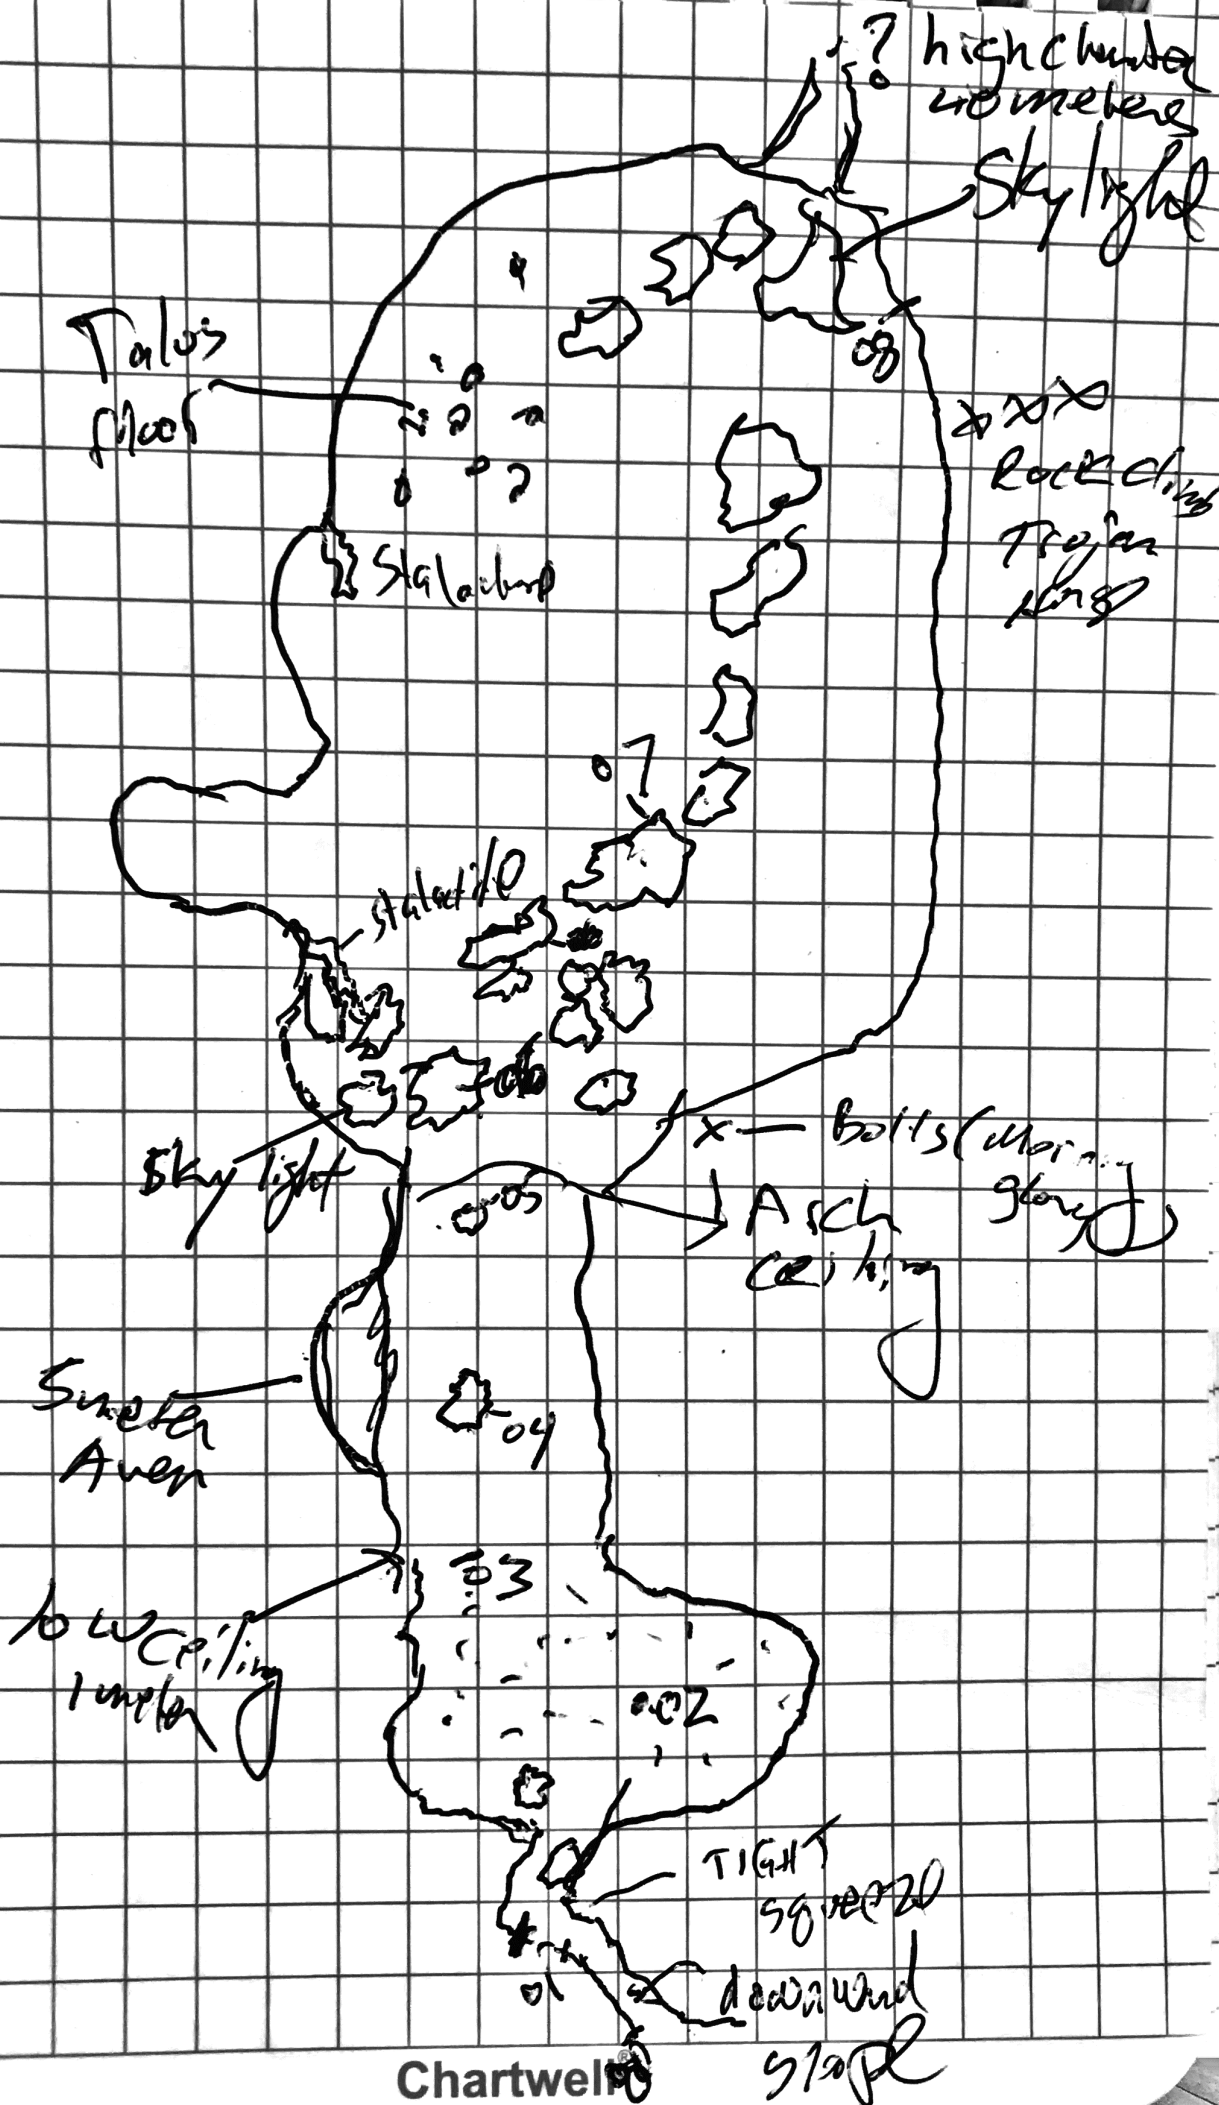 ?
high chamber
40 meters
Skylight
08
Talus
floor
xxx
Rock climb
Trojan
Stalactite
07
stalactite
06
Skylight
x— Bolts (Morning
glory)
05
Arch
ceiling
5 meter
Aven
04
low ceiling
1 meter
03
.02
TIGHT
squeeze
01
downward
slope
Chartwell®